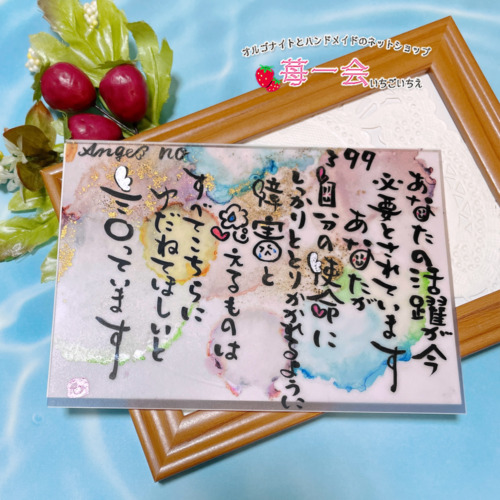 オルゴナイトとハンドメイドのネットショップ
苺一会
いちごいちえ
Angel no
399
あなたの活躍が今
必要とされています
あなたが
自分の使命に
しっかりととりかかれるように
障害と
思えるものは
すべてこちらに
ゆだねてほしいと
言っています